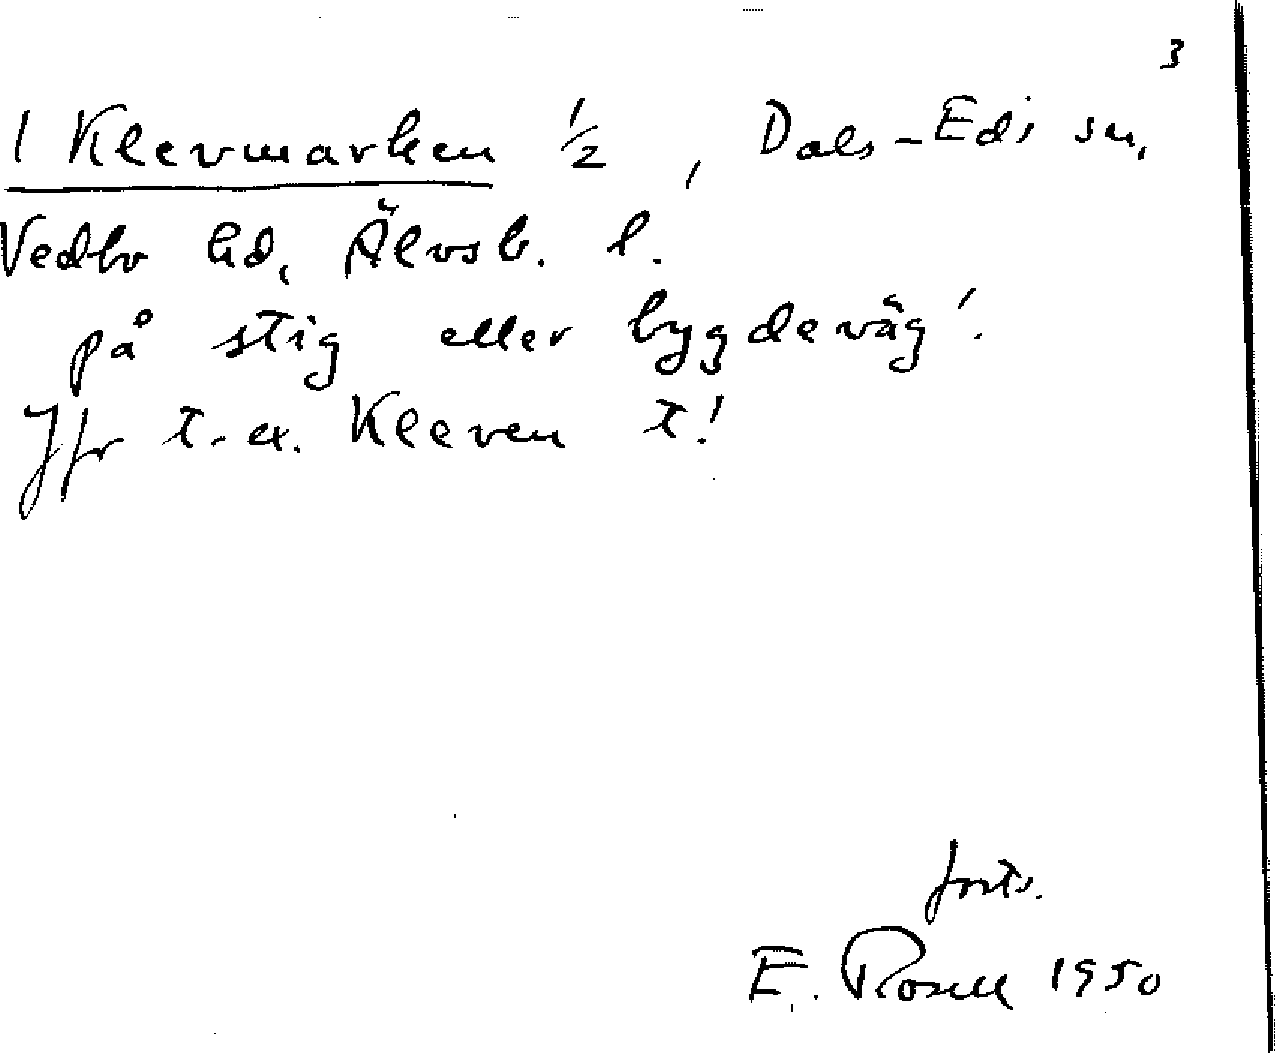 3
1 Klevmarken 1/2, Dals-Eds sn,
Vedbo hd, Älvsb. l.
på stig eller bygdeväg'.
Jfr t.ex. Kleven t!
forts.
E. Rosell 1950